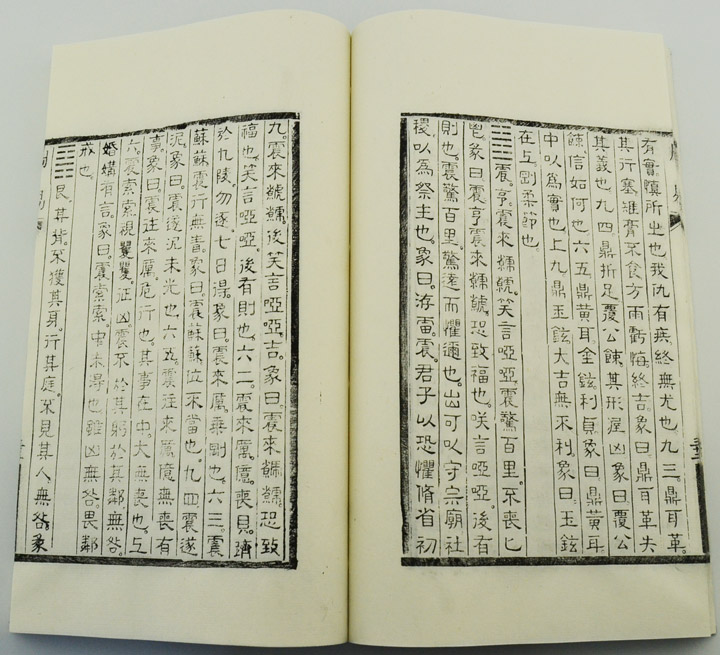 有實。慎所之也。我仇有疾。終無尤也。九三。鼎耳革。
其行塞。雉膏不食。方雨虧悔。終吉。象曰。鼎耳革。失
其義也。九四。鼎折足。覆公餗。其形渥。凶。象曰。覆公
餗。信如何也。六五。鼎黃耳。金鉉。利貞。象曰。鼎黃耳。
中以為實也。上九。鼎玉鉉。大吉。無不利。象曰。玉鉉
在上。剛柔節也。
䷲震。亨。震來虩虩。笑言啞啞。震驚百里。不喪匕
鬯。彖曰。震亨。震來虩虩。恐致福也。咲言啞啞。後有
則也。震驚百里。驚遠而懼邇也。出可以守宗廟社
稷。以為祭主也。象曰。洊雷。震。君子以恐懼脩省。初
九。震來虩虩。後笑言啞啞。吉。象曰。震來虩虩。恐致
福也。笑言啞啞。後有則也。六二。震來厲。億喪貝。躋
於九陵。勿逐。七日得。象曰。震來厲。乘剛也。六三。震
蘇蘇。震行無眚。象曰。震蘇蘇。位不當也。九四。震遂
泥。象曰。震遂泥。未光也。六五。震往來厲。億無喪有
事。象曰。震往來厲。危行也。其事在中。大無喪也。上
六。震索索。視矍矍。征凶。震不於其躬。於其鄰。無咎。
婚媾有言。象曰。震索索。中未得也。雖凶無咎。畏鄰
戒也。
䷳艮其背。不獲其身。行其庭。不見其人。無咎。彖
周易